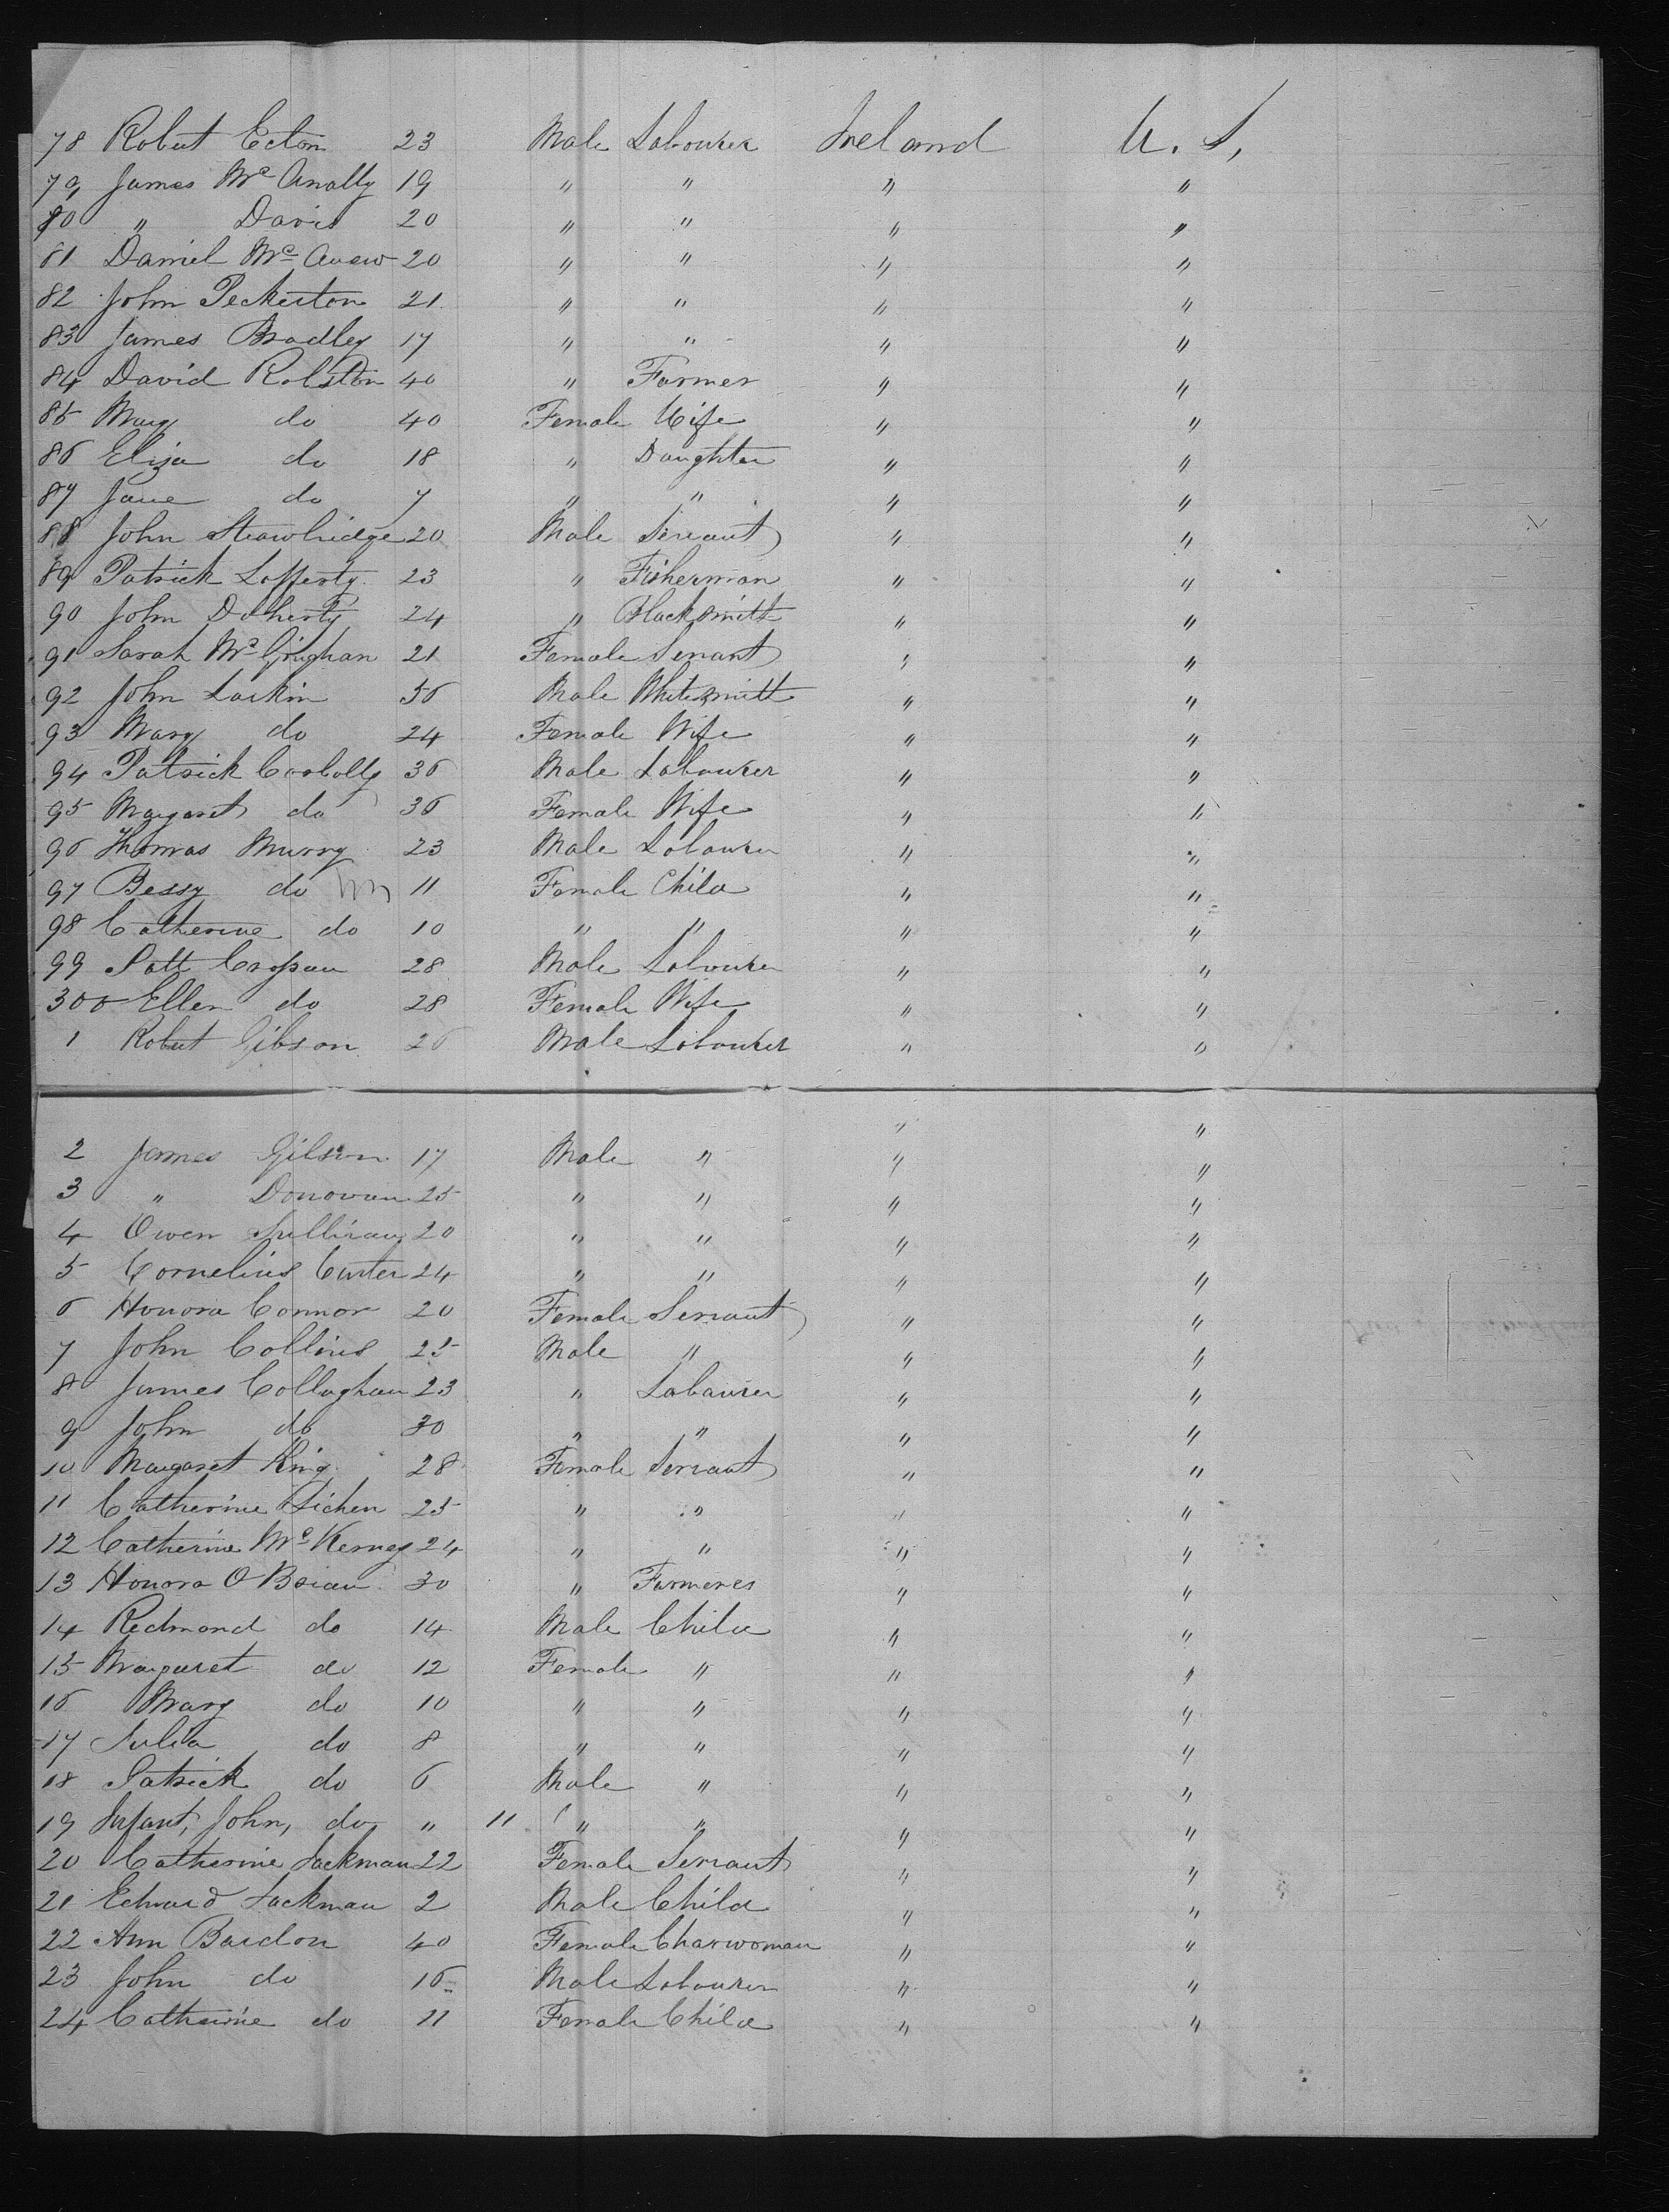 78 Robert Ecton 23 Male Labourer Ireland U. S,
79 James Mc Anally 19 " " " "
80 " Davis 20 " " " "
81 Daniel Mc 20 " " " "
82 John Peckerton 21 " " " "
83 James Bradley 17 " " " "
84 David Rolston 40 " Farmer " "
85 Mary do 40 Female Wife " "
86 Eliza do 18 " Daughter " "
87 Jane do 7 " " " "
88 John Strawbridge 20 Male Servant " "
89 Patrick Lafferty 23 " Fisherman " "
90 John Doherty 24 " Blacksmith " "
91 Sarah Mc 21 Female Servant " "
92 John Larkin 56 Male Whitesmith " "
93 Mary do 24 Female Wife " "
94 Patrick Carbolly 36 Male Labourer " "
95 Margaret do 36 Female Wife " "
96 Thomas Murry 23 Male Labourer " "
97 Bessy do 11 Female Child " "
98 Catherine do 10 " " " "
99 Patt Crossan 28 Male Labourer " "
300 Ellen do 28 Female Wife " "
1 Robert Gibson 26 Male Labourer " "
" "
2 James Gibson 17 Male " " "
3 " Donovan 25 " " " "
4 Owen Sullivan 20 " " " "
5 Cornelius Carter 24 " " " "
6 Honora Connor 20 Female Servant " "
7 John Collins 25 Male " " "
8 James Collaghan 23 " Labourer " "
9 John do 30 " " " "
10 Margaret King 28 Female Servant " "
11 Catherine 25 " " " "
12 Catherine Mc Kerney 24 " " " "
13 Honora O Brian 30 " Farmeres " "
14 Redmond do 14 Male Child " "
15 Margaret do 12 Female " " "
16 Mary do 10 " " " "
17 Julia do 8 " " " "
18 Patrick do 6 Male " " "
19 Infant, John, do " 11 " " " "
20 Catherine Jackman 22 Female Servant " "
21 Edward Jackman 2 Male Child " "
22 Ann Bardon 40 Female Charwoman " "
23 John do 16 Male Labourer " "
24 Catherine do 11 Female Child " "